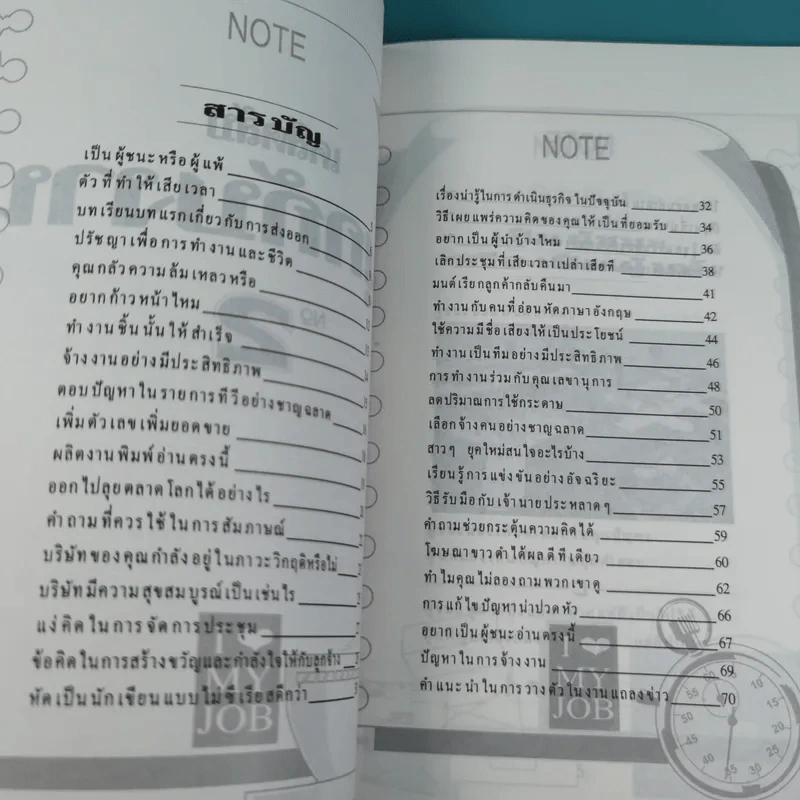 NOTE
สารบัญ
เป็นผู้ชนะหรือผู้แพ้
ตัวที่ทำให้เสียเวลา
บทเรียนบทแรกเกี่ยวกับการส่งออก
ปรัชญาเพื่อการทำงานและชีวิต
คุณกลัวความล้มเหลวหรือ
อยากก้าวหน้าไหม
ทำงานชิ้นนั้นให้สำเร็จ
จ้างงานอย่างมีประสิทธิภาพ
ตอบปัญหาในรายการทีวีอย่างชาญฉลาด
เพิ่มตัวเลขเพิ่มยอดขาย
ผลิตงานพิมพ์อ่านตรงนี้
ออกไปลุยตลาดโลกได้อย่างไร
คำถามที่ควรใช้ในการสัมภาษณ์
บริษัทของคุณกำลังอยู่ในภาวะวิกฤติหรือไม่
บริษัทมีความสุขสมบูรณ์เป็นเช่นไร
แง่คิดในการจัดการประชุม
ข้อคิดในการสร้างขวัญและกำลังใจให้กับลูกจ้าง
หัดเป็นนักเขียนแบบไม่ซีเรียสดีกว่า
I ❤ MY JOB
NOTE
เรื่องน่ารู้ในการดำเนินธุรกิจในปัจจุบัน 32
วิธีเผยแพร่ความคิดของคุณให้เป็นที่ยอมรับ 34
อยากเป็นผู้นำบ้างไหม 36
เลิกประชุมที่เสียเวลาเปล่าเสียที 38
มนต์เรียกลูกค้ากลับคืนมา 41
ทำงานกับคนที่อ่อนหัดภาษาอังกฤษ 42
ใช้ความมีชื่อเสียงให้เป็นประโยชน์ 44
ทำงานเป็นทีมอย่างมีประสิทธิภาพ 46
การทำงานร่วมกับคุณเลขานุการ 48
ลดปริมาณการใช้กระดาษ 50
เลือกจ้างคนอย่างชาญฉลาด 51
สาวๆ ยุคใหม่สนใจอะไรบ้าง 53
เรียนรู้การแข่งขันอย่างอัจฉริยะ 55
วิธีรับมือกับเจ้านายประหลาดๆ 57
คำถามช่วยกระตุ้นความคิดได้ 59
โฆษณาขาวดำได้ผลดีทีเดียว 60
ทำไมคุณไม่ลองถามพวกเขาดู 62
การแก้ไขปัญหาน่าปวดหัว 66
อยากเป็นผู้ชนะอ่านตรงนี้ 67
ปัญหาในการจ้างงาน 69
คำแนะนำในการวางตัวในงานแถลงข่าว 70
I ❤ MY JOB